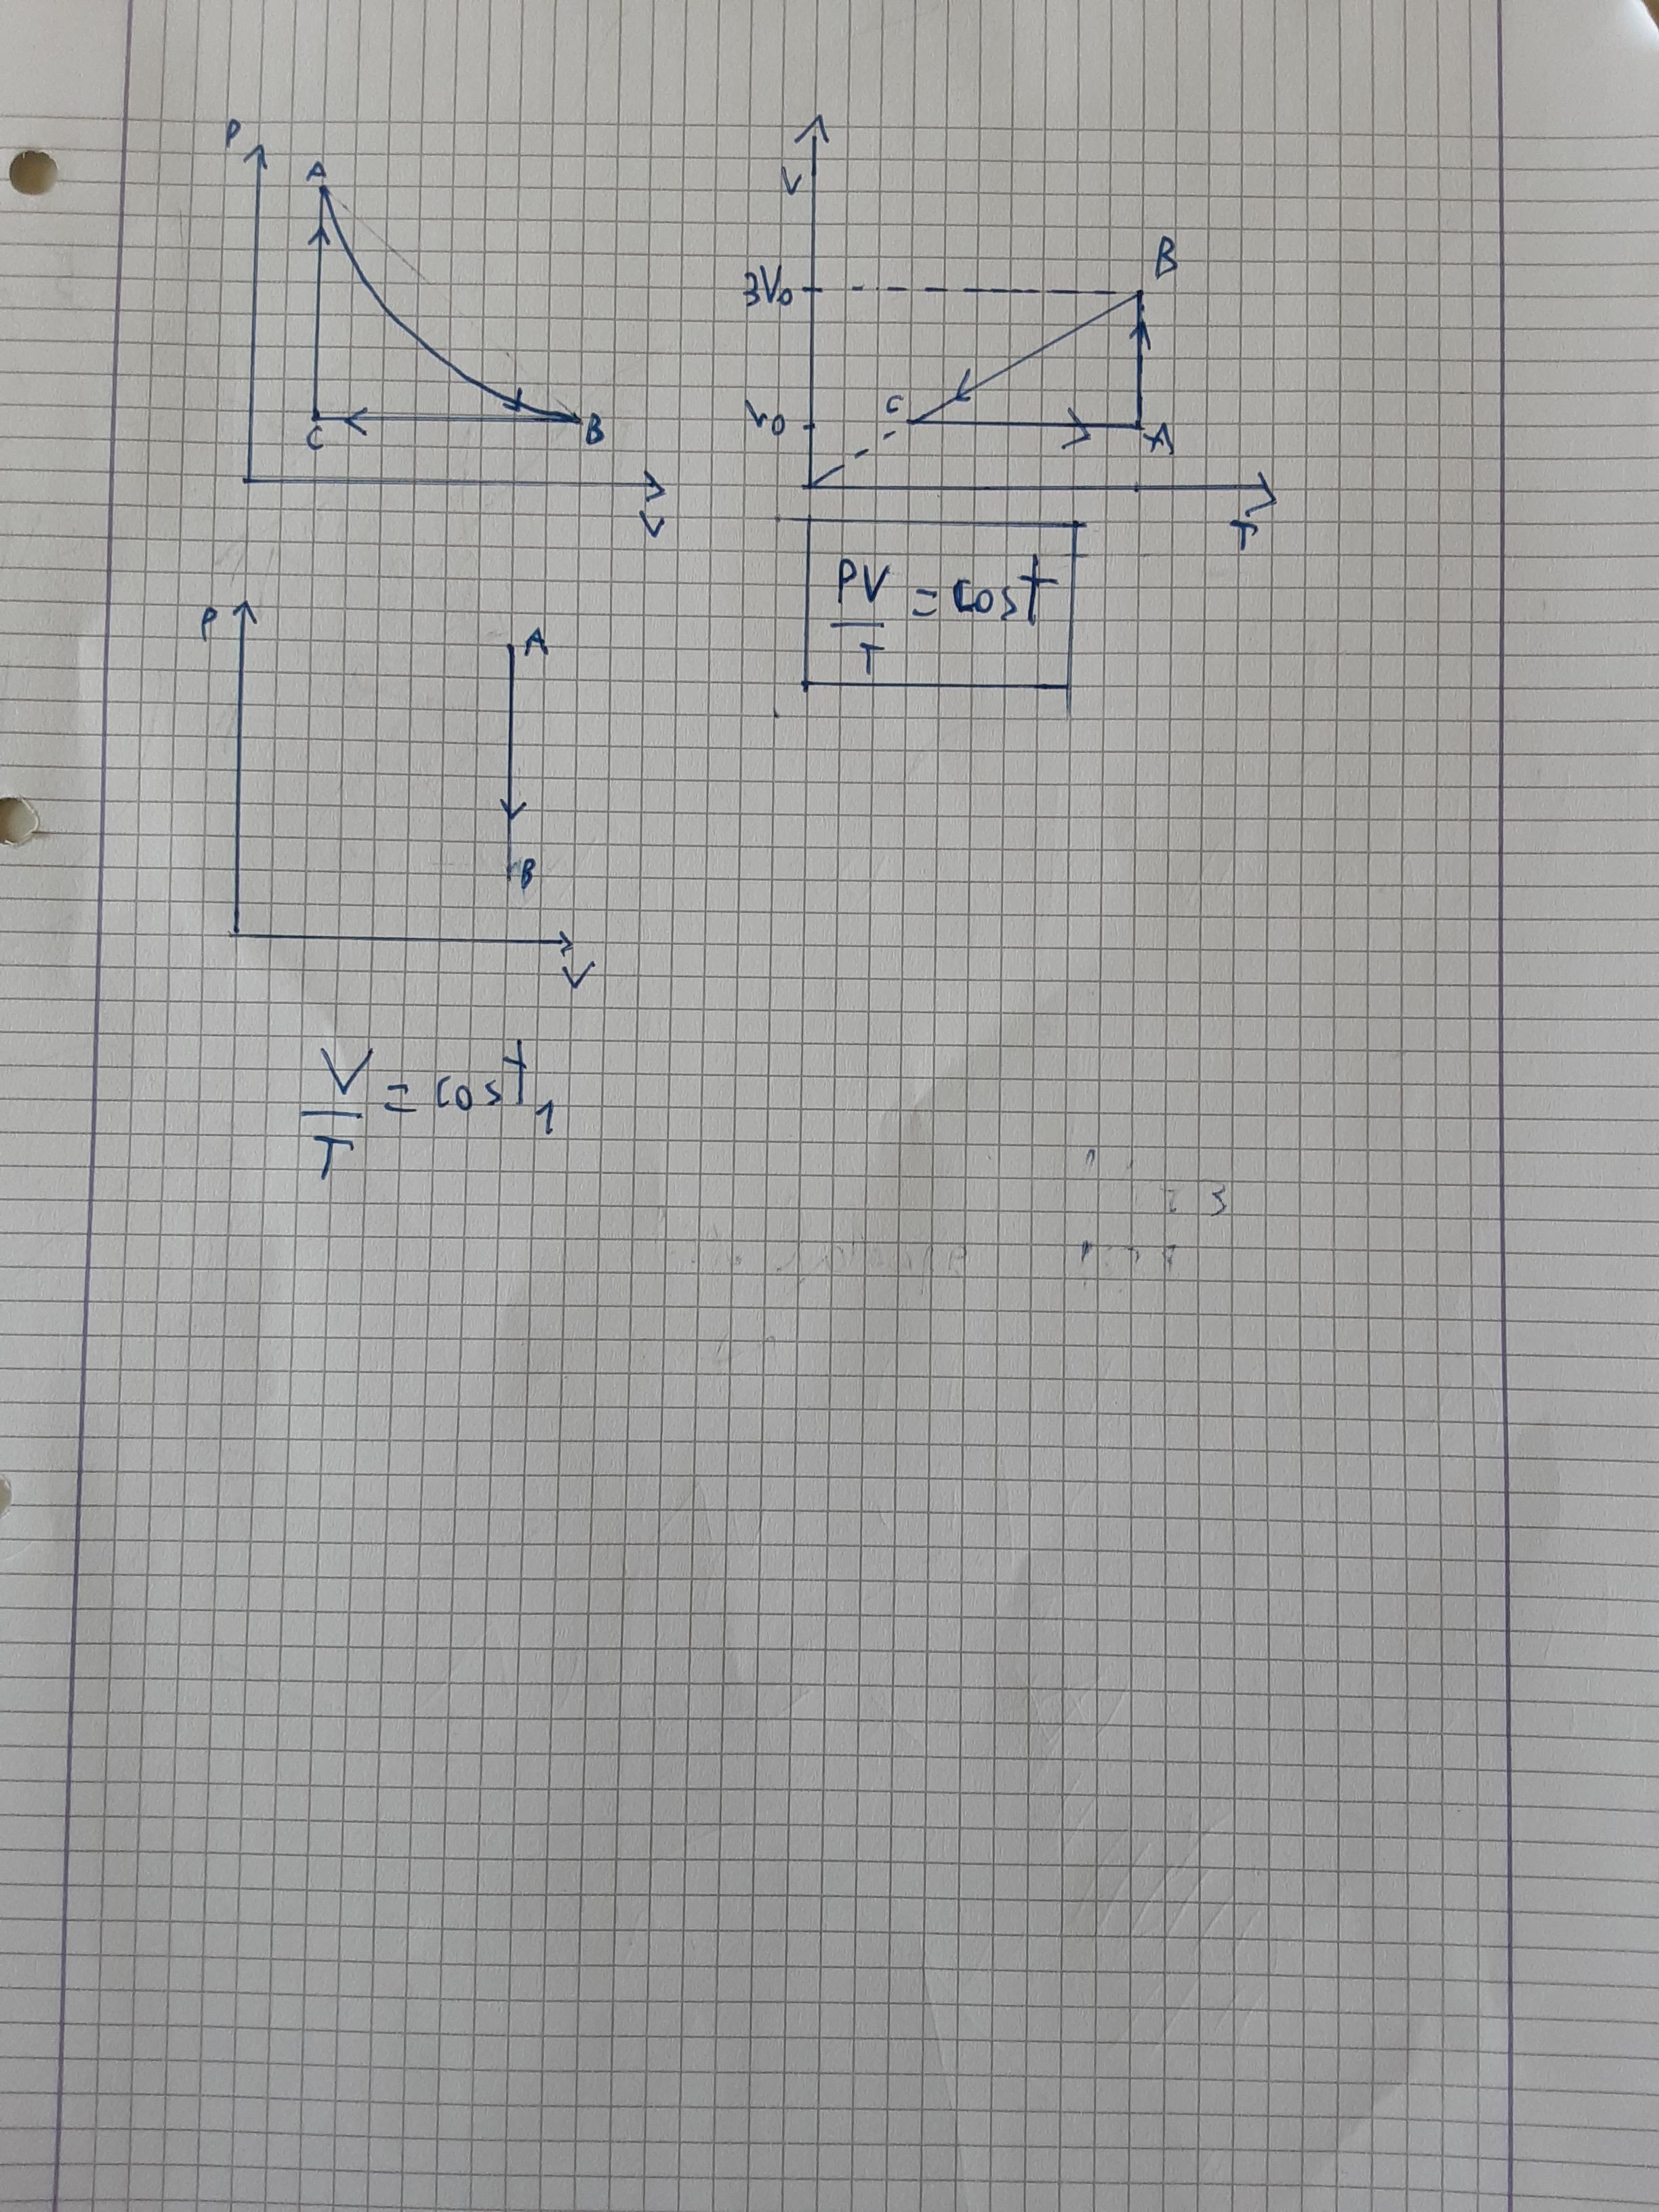 P
A
C
B
V
V
3V₀
V₀
B
C
A
T
PV
— = cost
T
P
A
B
V
V
— = cost₁
T